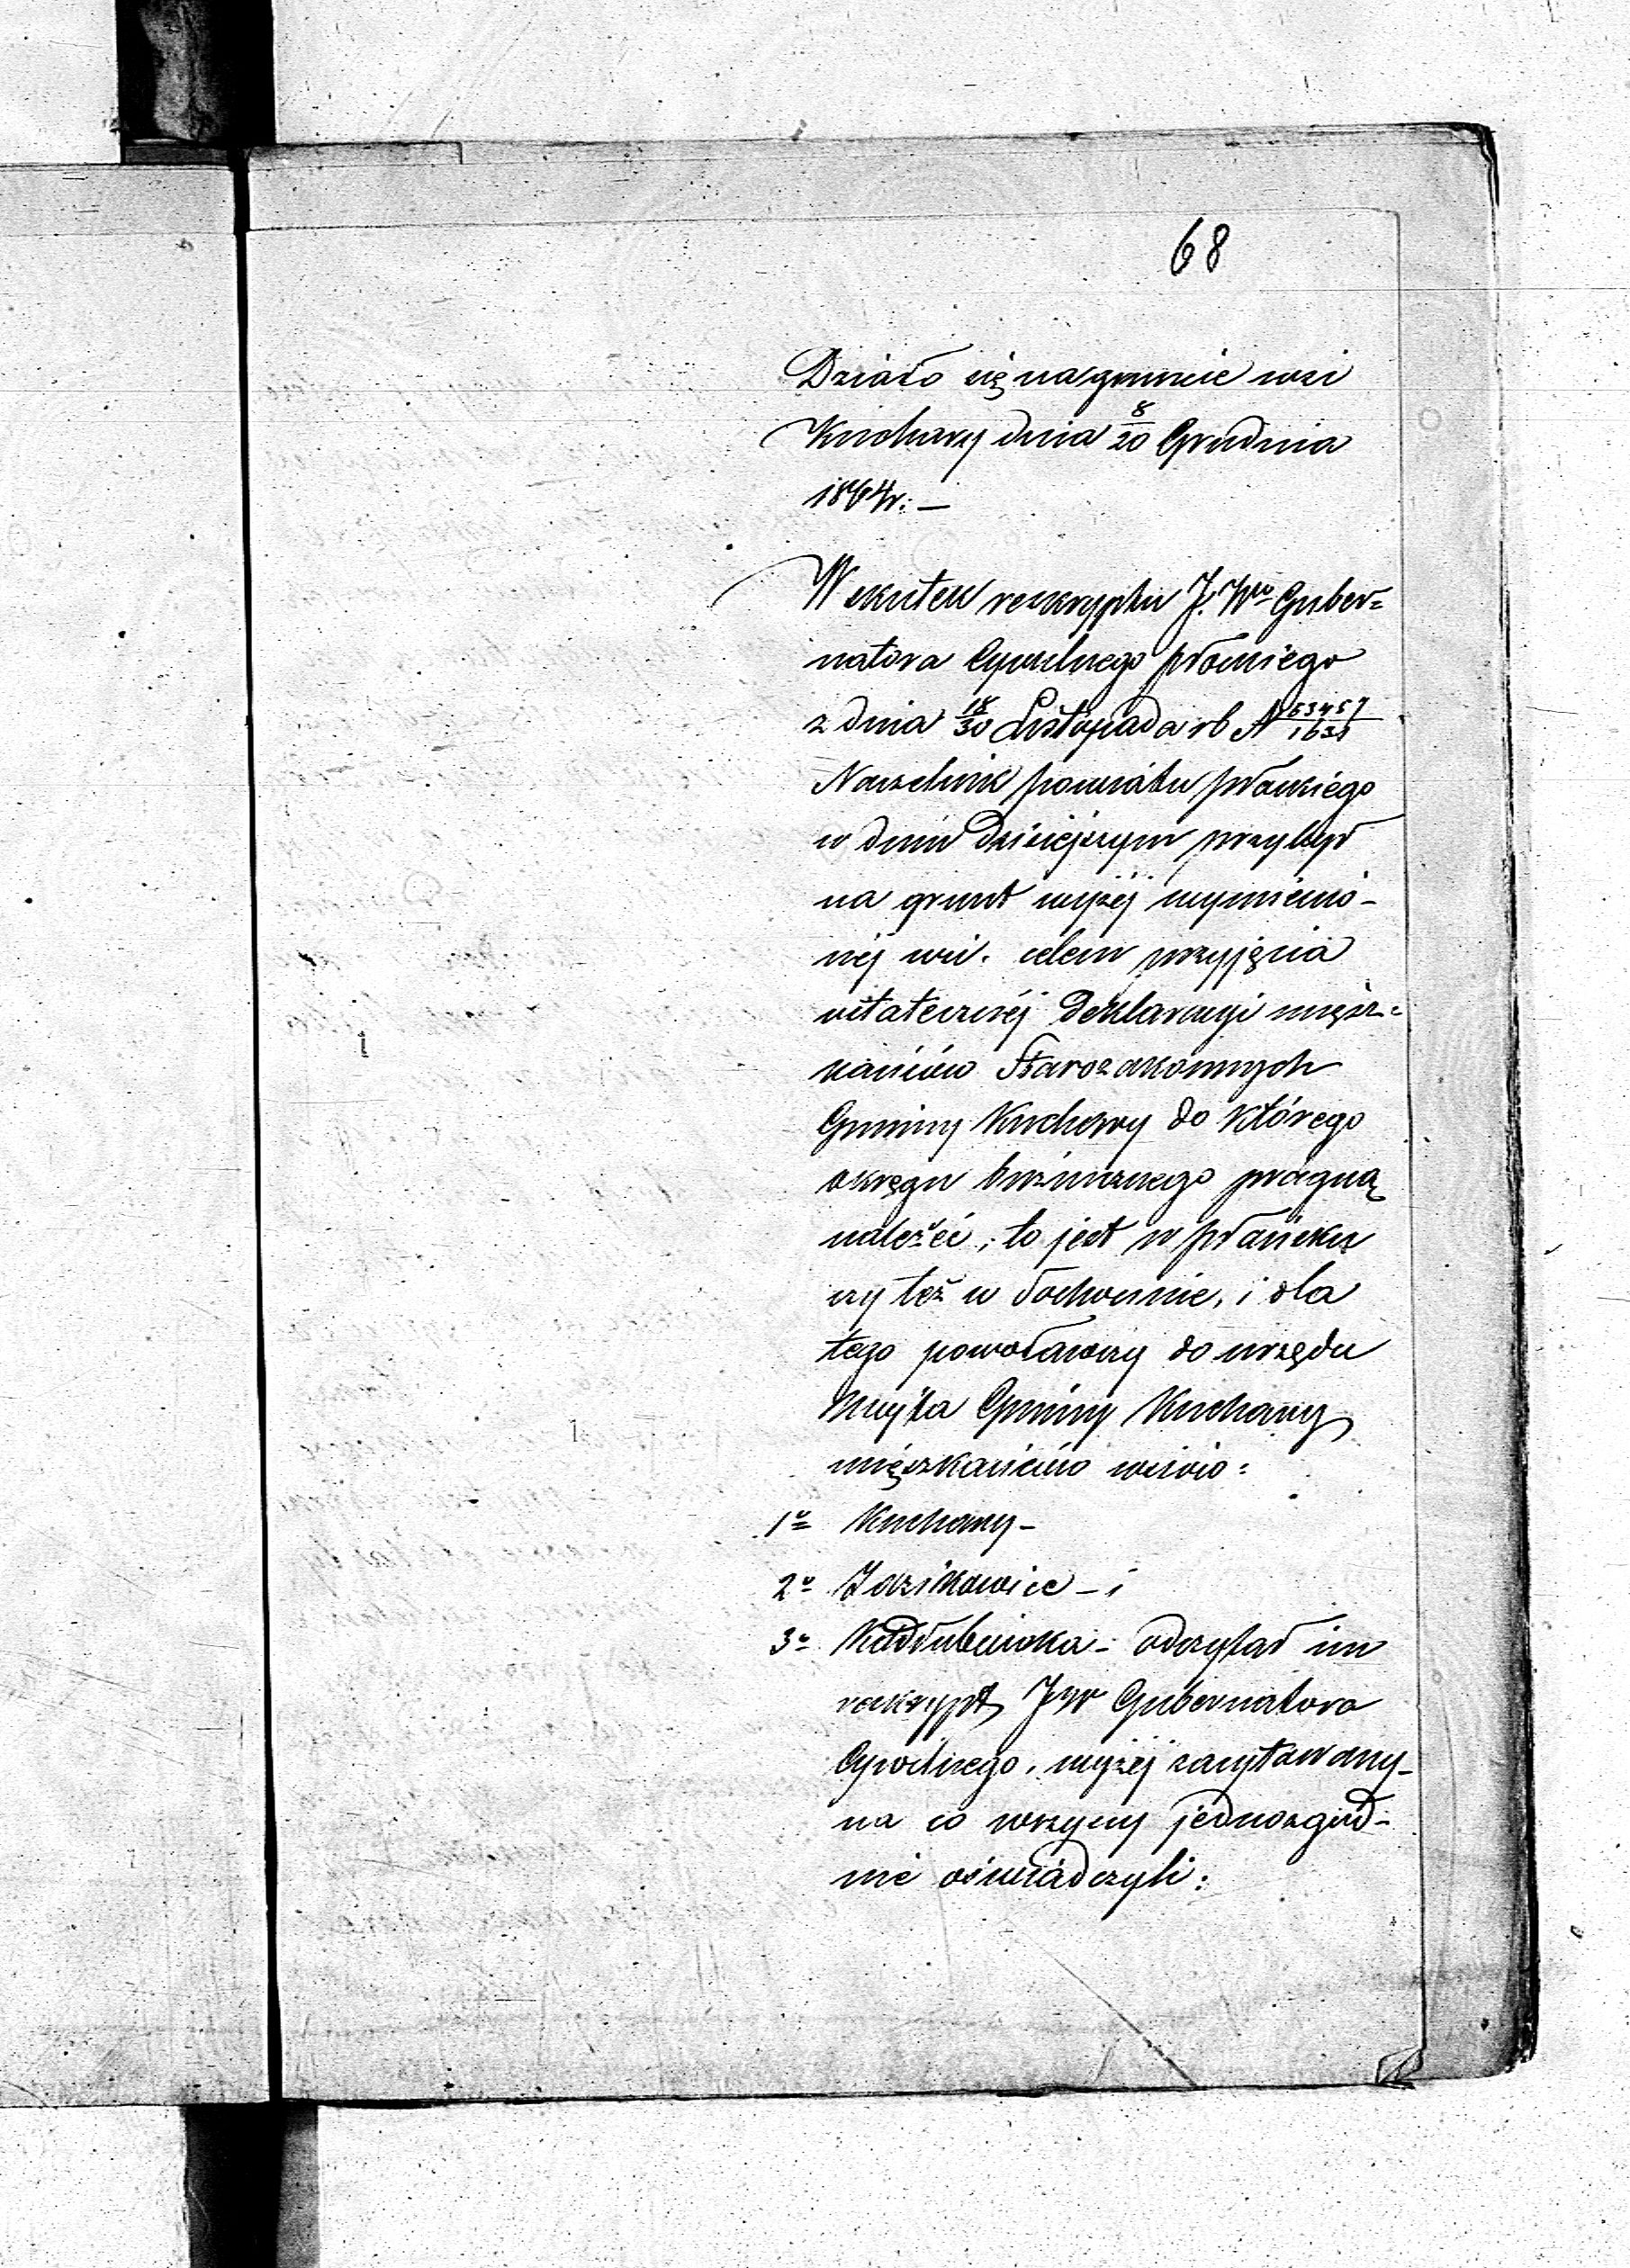 68
Działo się na gruncie wsi
Kuchary dnia 8/20 Grudnia
1864r: —
W skutek reskryptu J. Wo Guber=
natora Cywilnego płockiego
z dnia 18/30 Listopada rb N
Naczelnik powiatu płockiego
w dniu dzisiejszym przybył
na grunt wyżéj wymienio-
néj wsi. celem przyjęcia
ostatecznéj deklaracyi miesz=
kańców Starozakonnych
Gminy Kuchary do którego
okręgu bużniczego pragną
należéć, to jest w płońsku
czy też w Sochocinie, i dla
tego powoławszy do urzędu
Wójta Gminy Kuchary
mięszkańców wsiów:
1o Kuchary-
2o Jdzikowice - i
3o odczytał im
reskrypt JW Gubernatora
Cywilnego, wyżéj zacytowany-
na co wszyscy jednozgod-
nie oświadczyli: